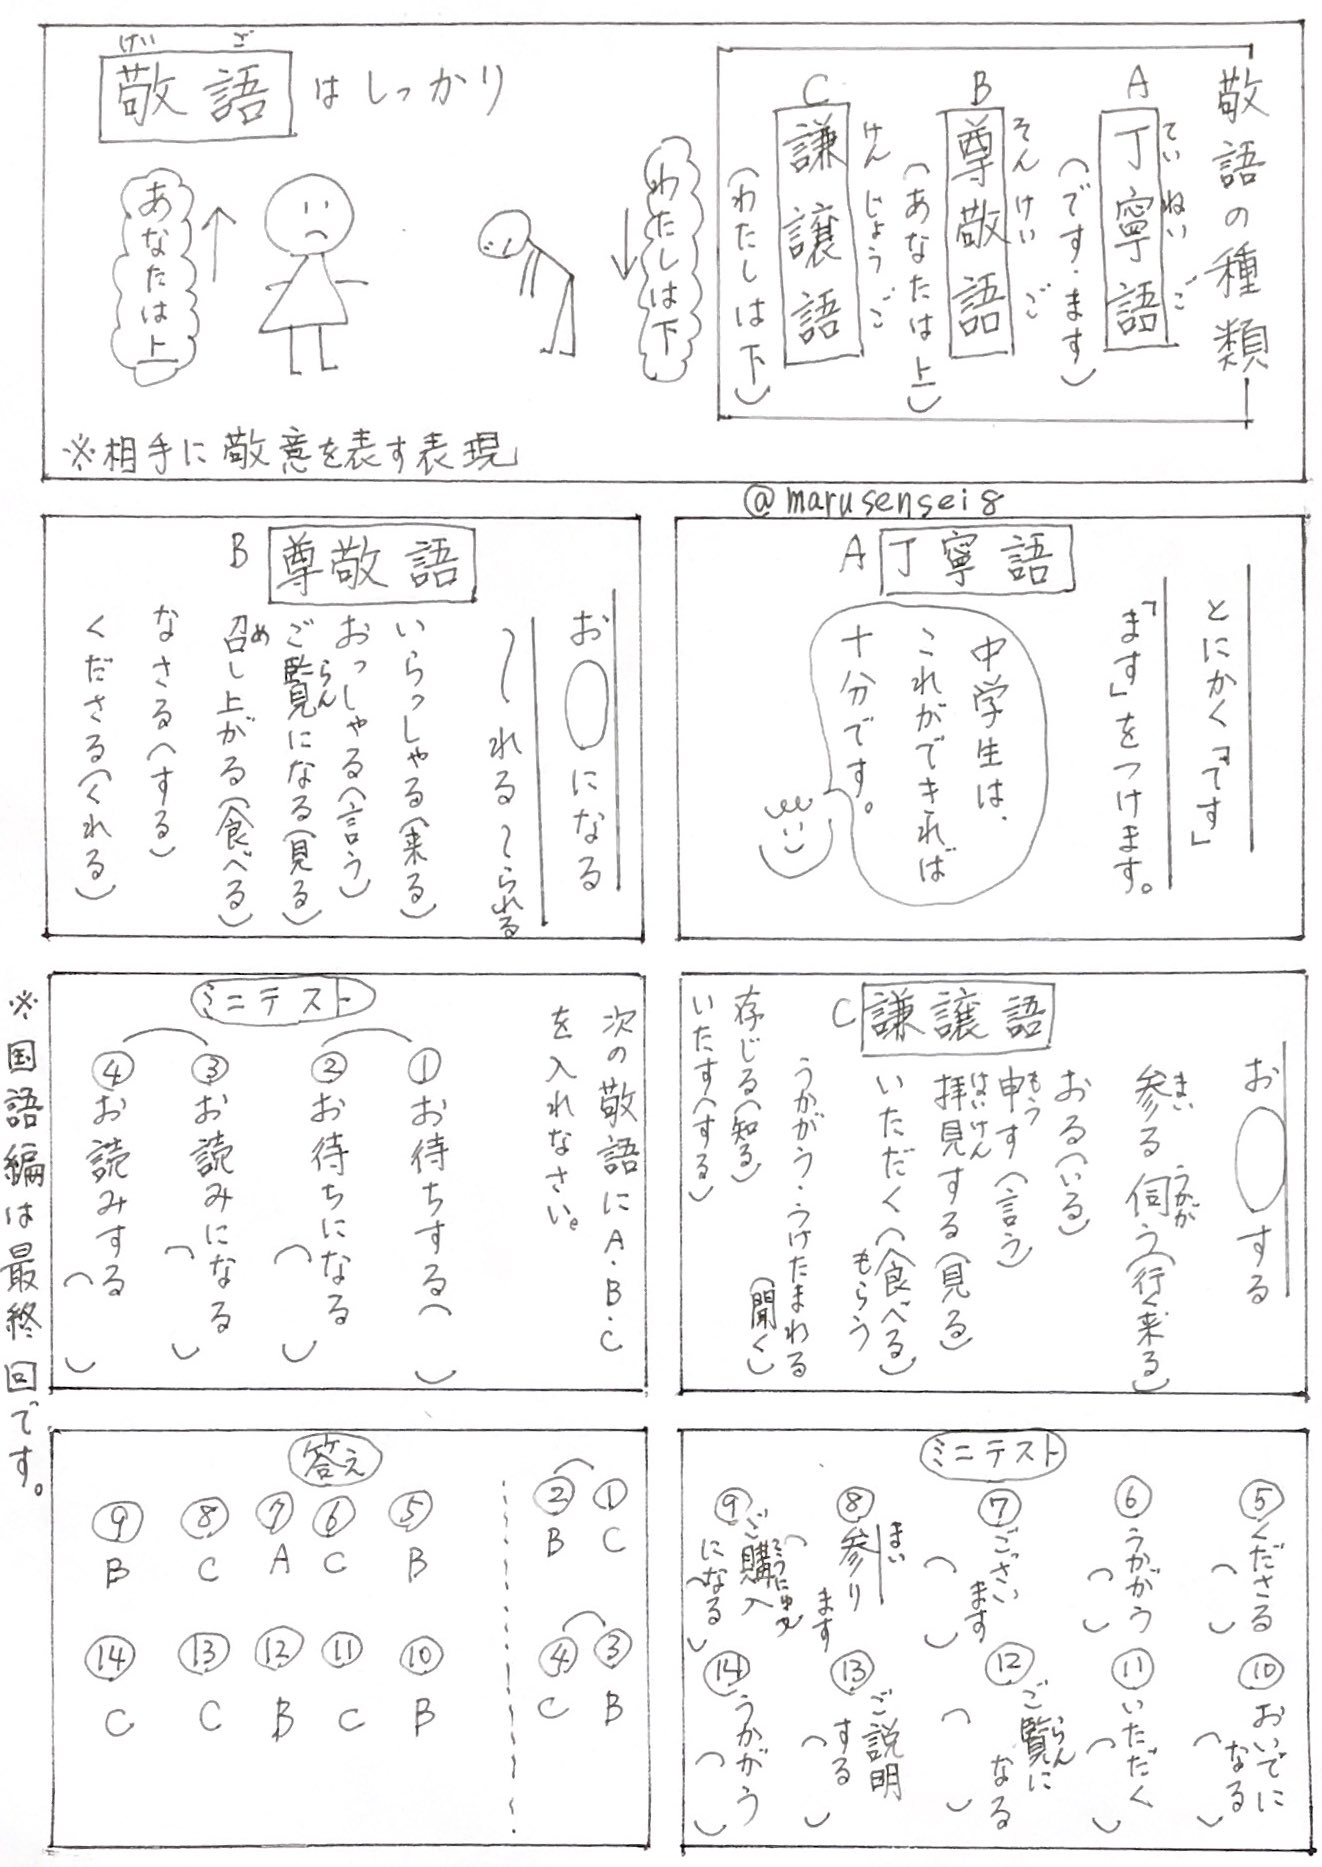 敬語の種類
A
丁寧語
ていねいご
(です・ます)
B
尊敬語
そんけいご
(あなたは上)
C
謙譲語
けんじょうご
(わたしは下)
けい ご
敬語はしっかり
わたしは下
あなたは上
※相手に敬意を表す表現
@marusensei8
A 丁寧語
とにかく「です」
「ます」をつけます。
中学生は、
これができれば
十分です。
B 尊敬語
お○になる
〜れる 〜られる
いらっしゃる(来る)
おっしゃる(言う)
ご覧になる(見る)
らん
召し上がる(食べる)
め
なさる(する)
くださる(くれる)
C 謙譲語
お○する
参る 伺う(行く来る)
まい うかが
おる(いる)
申す(言う)
もう
拝見する(見る)
はいけん
いただく(食べる)
もらう
うかがう・うけたまわる
(聞く)
存じる(知る)
いたす(する)
ミニテスト
次の敬語にA・B・C
を入れなさい。
①お待ちする( )
②お待ちになる( )
③お読みになる( )
④お読みする( )
※国語編は最終回です。
ミニテスト
⑤くださる( )
⑥うかがう( )
⑦ございます( )
⑧参ります( )
まい
⑨ご購入になる( )
こうにゅう
⑩おいでになる( )
⑪いただく( )
⑫ご覧になる( )
らん
⑬ご説明する( )
⑭うかがう( )
答え
① C
② B
③ B
④ C
⑤ B
⑥ C
⑦ A
⑧ C
⑨ B
⑩ B
⑪ C
⑫ B
⑬ C
⑭ C